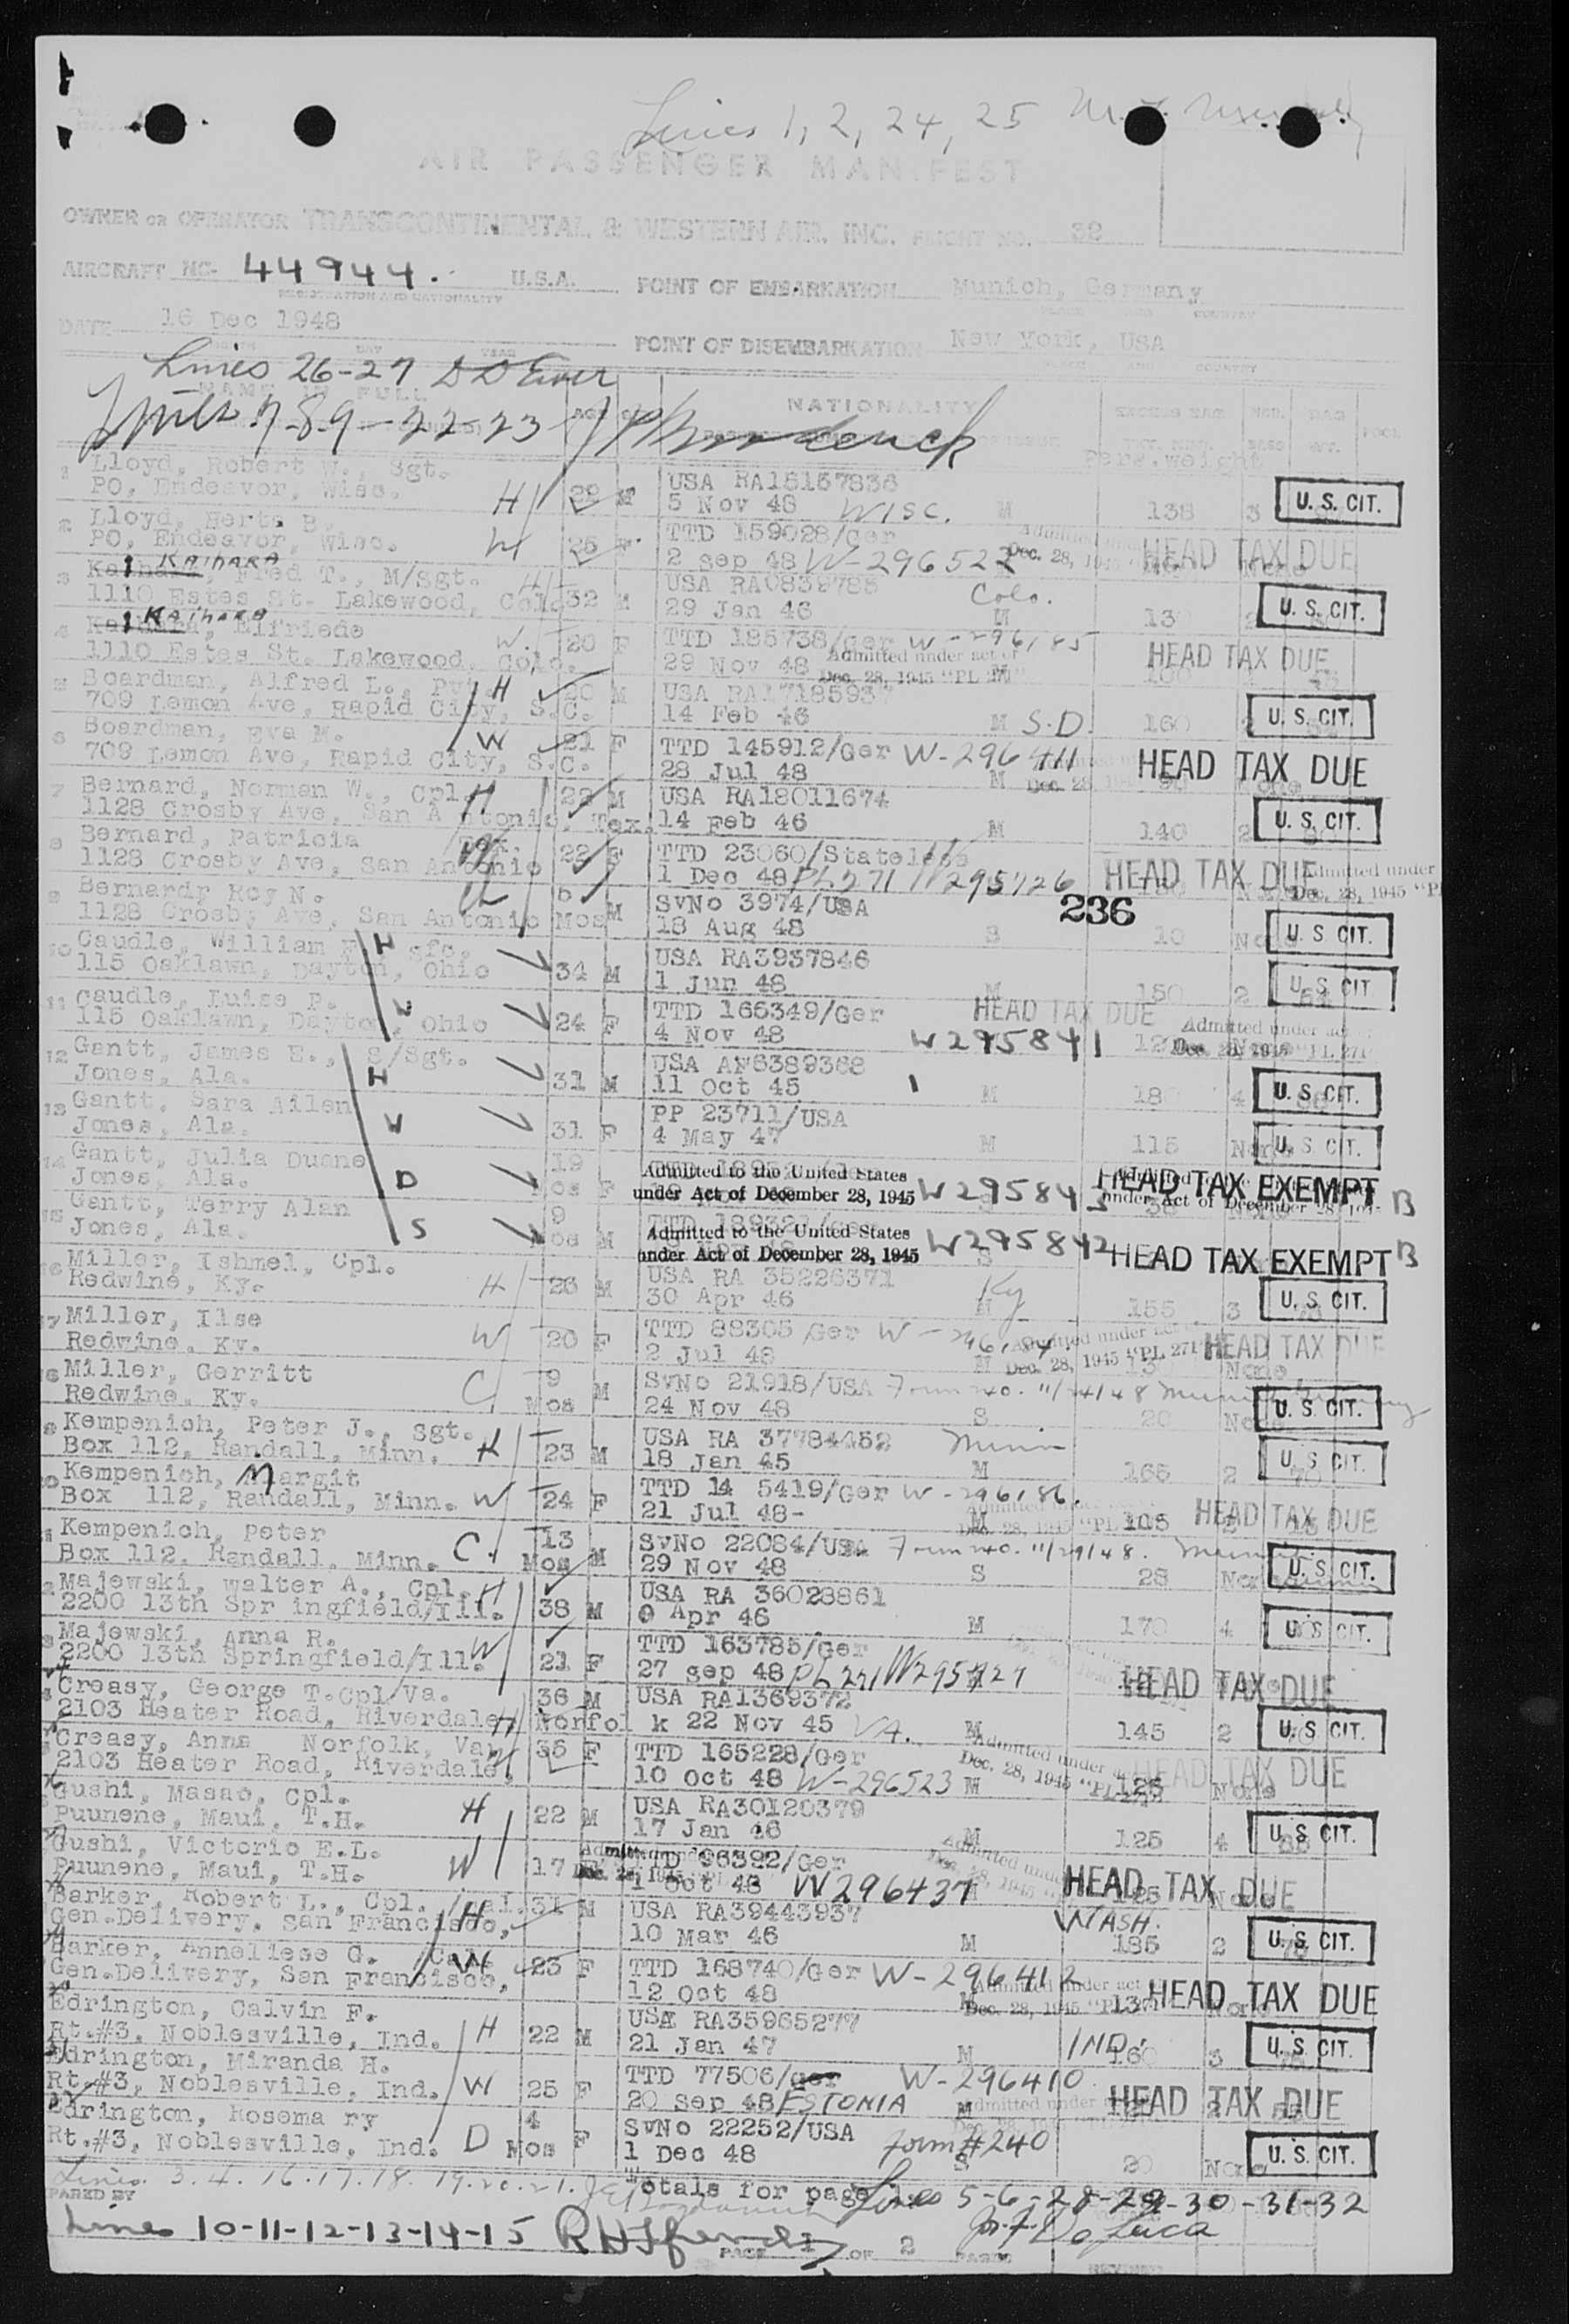 Lines 1, 2, 24, 25
AIR PASSENGER MANIFEST
OWNER OR OPERATOR TRANSCONTINENTAL & WESTERN AIR, INC. FLIGHT NO. 32
AIRCRAFT NO. 44944. U.S.A. POINT OF EMBARKATION Munich, Germany
REGISTRATION AND NATIONALITY PLACE AND COUNTRY
DATE 16 Dec 1948 POINT OF DISEMBARKATION New York, USA
DAY YEAR AND COUNTRY
Lines 26-27
NAME IN FULL AGE NATIONALITY
7-8-9-22-23
Pers.weight
1 Lloyd, Robert W., Sgt. USA RA16157836
PO, Endeavor, Wisc. H 29 M 5 Nov 48 WISC. M 138 3 U. S. CIT.
2 Lloyd, Herta B. TTD 159028/Ger
PO, Endeavor, Wisc. W 25 F 2 sep 48 W-296522 Dec. 28, HEAD TAX DUE
KAIHARA
3 Fred T., M/Sgt. H USA RA0839788 Colo.
1110 Estes St. Lakewood, Colo. 32 M 29 Jan 46 M 13 2 U. S. CIT.
KAIHARA
4 Elfriede W. 20 F TTD 186738/Ger W-296185
1110 Estes St. Lakewood, Colo. 29 Nov 48 Admitted under act of Dec. 28, 1945 "PL M HEAD TAX DUE
5 Boardman, Alfred L., Pvt. H 20 M USA RA1718593
709 Lemon Ave, Rapid City, S.C. 14 Feb 46 M S.D. 160 2 U. S. CIT.
6 Boardman, Eva M. W 21 F TTD 145912/Ger W-296411
709 Lemon Ave, Rapid City, S.C. 28 Jul 48 M Dec. 28, HEAD TAX DUE
7 Bernard, Norman W., Cpl. H 22 M USA RA18011674
1128 Crosby Ave, San Antonio, Tex. 14 Feb 46 M 140 2 U. S. CIT.
8 Bernard, Patricia Tex. 22 F TTD 23060/Stateless
1128 Crosby Ave, San Antonio 1 Dec 48 PL271 W295726 HEAD TAX DUE Admitted under Dec. 28, 1945 "P
236
9 Bernard, Roy N. 6 SvNo 3974/USA
1128 Crosby Ave, San Antonio Mos M 18 Aug 48 S 10 None U. S. CIT.
10 Caudle, William F. sfc. H USA RA3937846
115 Oaklawn, Dayton, Ohio 34 M 1 Jun 48 M 150 2 U. S. CIT.
11 Caudle, Luise P. W TTD 166349/Ger HEAD TAX DUE
115 Oaklawn, Dayton, Ohio 24 F 4 Nov 48 W295841 Admitted under act Dec. 28, 1945 "PL 271"
12 Gantt, James E., S/Sgt. USA AF6389368
Jones, Ala. H 31 M 11 Oct 45 M 180 4 U. S. CIT.
13 Gantt, Sara Ailen PP 23711/USA
Jones, Ala. W 31 F 4 May 47 M 115 None U. S. CIT.
14 Gantt, Julia Duane 19 Admitted to the United States
Jones, Ala. D Mos F under Act of December 28, 1945 W295843 HEAD TAX EXEMPT B
15 Gantt, Terry Alan 9 Admitted to the United States
Jones, Ala. S Mos M under Act of December 28, 1945 W295842 HEAD TAX EXEMPT B
16 Miller, Ishmel, Cpl. USA RA 35226371 Ky
Redwine, Ky. H 26 M 30 Apr 46 M 155 3 U. S. CIT.
17 Miller, Ilse TTD 88305/Ger W-296184
Redwine, Ky. W 20 F 2 Jul 48 M Admitted under act Dec. 28, 1945 "PL 271" HEAD TAX DUE None
18 Miller, Gerritt 9 SvNo 21918/USA Form 240. 11/24/48 Munich, Germany
Redwine, Ky. C Mos M 24 Nov 48 S 20 None U. S. CIT.
19 Kempenich, Peter J., Sgt. USA RA 37784452 Minn
Box 112, Randall, Minn. H 23 M 18 Jan 45 M 165 2 U. S. CIT.
20 Kempenich, Margit TTD 14 5419/Ger W-296186.
Box 112, Randall, Minn. W 24 F 21 Jul 48- M 105 HEAD TAX DUE
21 Kempenich, Peter 13 SvNo 22084/USA Form 240. 11/29/48. Munich
Box 112, Randall, Minn. C. Mos M 29 Nov 48 S 28 None U. S. CIT.
Majewski, Walter A., Cpl. H USA RA 36028861
2200 13th Spr ingfield/Ill. 38 M 9 Apr 46 M 170 4 U. S. CIT.
Majewski, Anna R. W TTD 163785/Ger
2200 13th Springfield/Ill. 21 F 27 sep 48 PL271 W295727 HEAD TAX DUE
Creasy, George T. Cpl/Va. 36 M USA RA1369372
2103 Heater Road, Riverdale, H Norfol k 22 Nov 45 VA. M 145 2 U. S. CIT.
Creasy, Anna Norfolk, Va. 35 F TTD 165228/Ger
2103 Heater Road, Riverdale, W 10 Oct 48 W-296523 M Admitted under Dec. 28, 1945 125 HEAD TAX DUE None
Gushi, Masao, Cpl. USA RA30120379
Puunene, Maui, T.H. H 22 M 17 Jan 46 M 125 4 U. S. CIT.
Gushi, Victorie E.L. TTD 96392/Ger
Puunene, Maui, T.H. W 17 1 Oct 48 W296437 HEAD TAX DUE
Barker, Robert L., Cpl. /Cal. 31 M USA RA39443937 WASH.
Gen.Delivery, San Francisco, H 10 Mar 46 M 185 2 U. S. CIT.
Barker, Anneliese G. /Cal. W 23 F TTD 168740/Ger W-296412
Gen.Delivery, San Francisco, 12 Oct 48 M Admitted under act Dec. 28, 1945 "PL 137 HEAD TAX DUE None
Edrington, Calvin F. USA RA35965277
Rt.#3, Noblesville, Ind. H 22 M 21 Jan 47 M IND. 160 3 U. S. CIT.
Edrington, Miranda H. TTD 77506/Ger W-296410
Rt.#3, Noblesville, Ind. W 25 F 20 Sep 48 ESTONIA M Admitted under HEAD TAX DUE
Edrington, Rosema ry 4 SvNo 22252/USA Form #240
Rt.#3, Noblesville, Ind. D Mos F 1 Dec 48 S 20 None U. S. CIT.
Lines 3.4.16.17.18.19.20.21. Totals for page 1 Lines 5-6-28-29-30-31-32
PARED BY
Lines 10-11-12-13-14-15 PAGE 1 OF 2 Jos. F. DeLuca